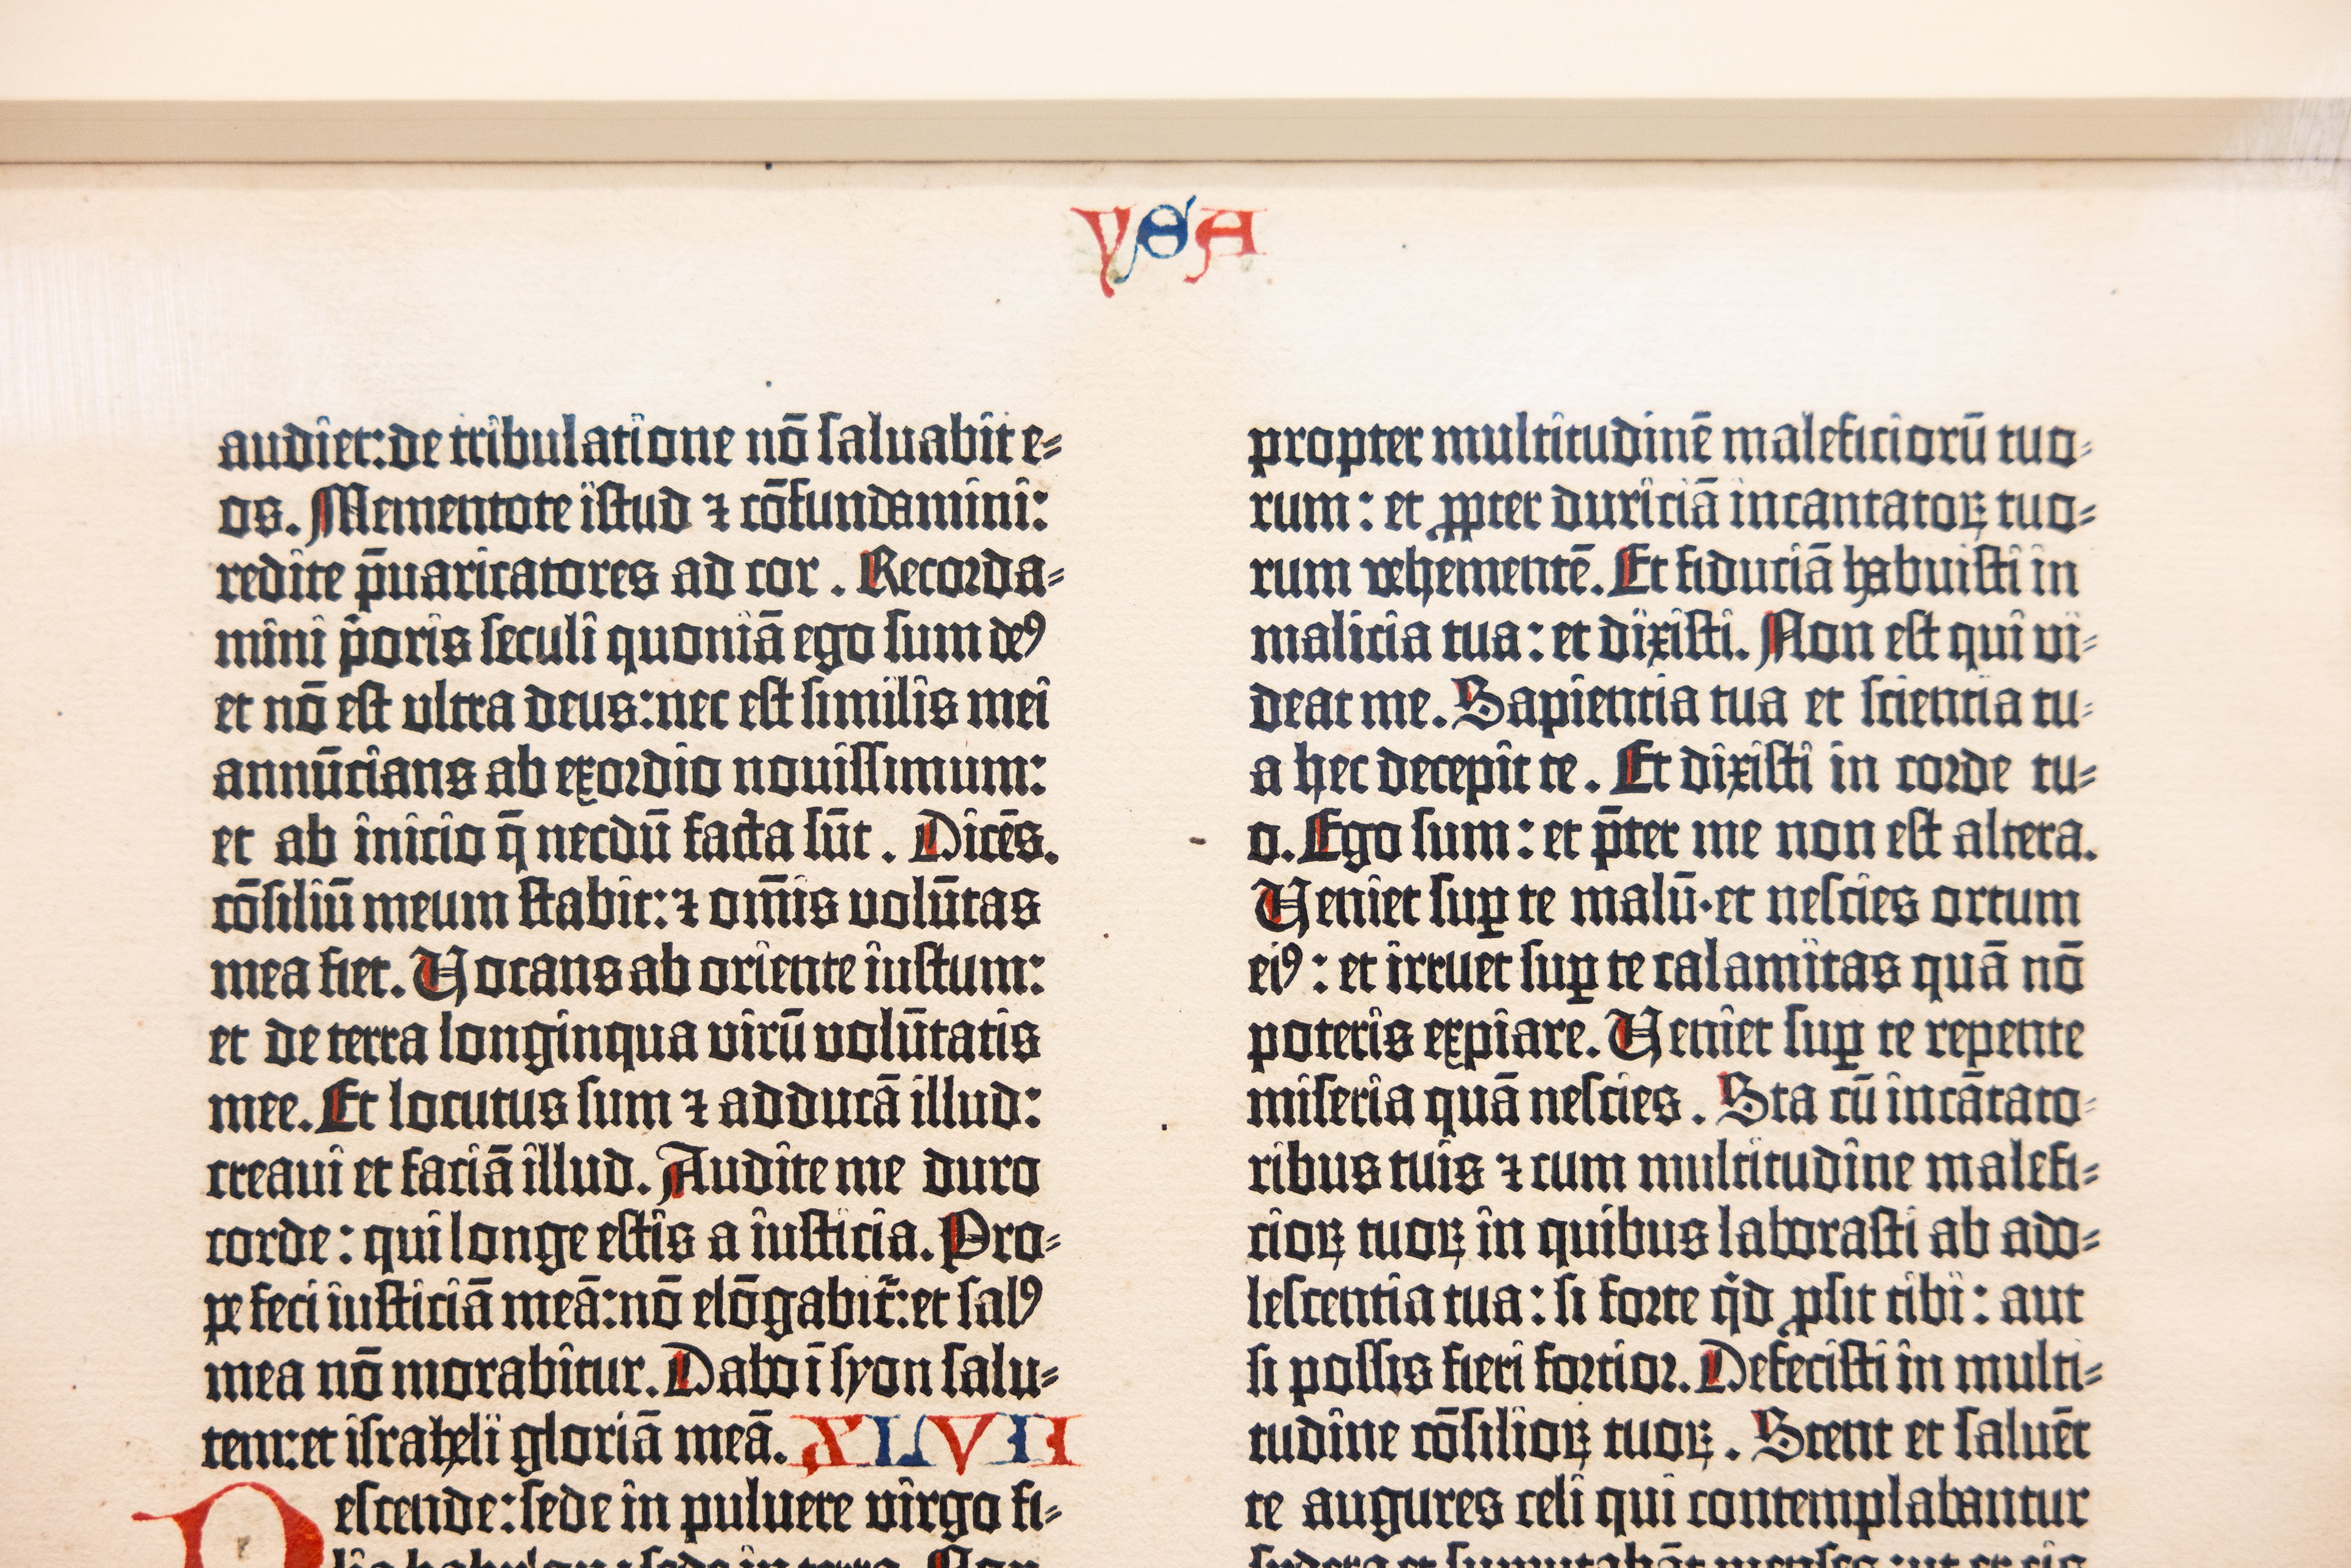 YSA
audiet: de tribulatione nō saluabit e⸗
os. Mementote istud ⁊ cōfundamini:
redite p̄uaricatores ad cor. Recorda⸗
mini p̍oris seculi quoniā ego sum deꝰ
et nō est ultra deus: nec est similis mei
annūcians ab exordio nouissimum:
et ab inicio q̄ necdū facta sūt. Dicēs.
cōsiliū meum stabit: ⁊ om̄is volūtas
mea fiet. Vocans ab oriente iustum:
et de terra longinqua virū volūtatis
mee. Et locutus sum ⁊ adducā illud:
creaui et faciā illud. Audite me duro
corde: qui longe estis a iusticia. Pro⸗
pe feci iusticiā meā: nō elōgabit᷑: et salꝰ
mea nō morabitur. Dabo ī syon salu⸗
tem: et israheli gloriā meā. XLVII
Descende: sede in puluere virgo fi⸗
lia babylon: sede in terra. Non
propter multitudinē maleficiorū tuo⸗
rum: et ꝓpter duriciā incantatoꝝ tuo⸗
rum vehementē. Et fiduciā habuisti in
malicia tua: et dixisti. Non est qui vi⸗
deat me. Sapientia tua et scientia tu⸗
a hec decepit te. Et dixisti in corde tu⸗
o. Ego sum: et p̄ter me non est altera.
Veniet suꝑ te malū· et nescies ortum
eiꝰ: et irruet suꝑ te calamitas quā nō
poteris expiare. Veniet suꝑ te repente
miseria quā nescies. Sta cū incātato⸗
ribus tuis ⁊ cum multitudine malefi⸗
cioꝝ tuoꝝ in quibus laborasti ab ado⸗
lescentia tua: si forte q̍d ꝓsit tibi: aut
si possis fieri fortior. Defecisti in multi⸗
tudine cōsilioꝝ tuoꝝ. Stent et saluēt
te augures celi qui contemplabantur
sydera et supputabāt menses: ut ex eis